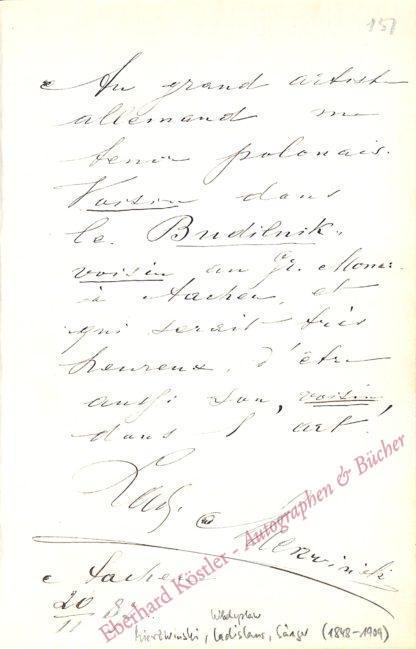 151
Au grand artiste
allemand un
tenor polonais.
Voisin dans
le Budilnik,
voisin au Gr. Monar
à Aachen, et
qui serait très
heureux, d'être
aussi son, voisin,
dans l'art!
Lad. Mierwinski
Aachen
20/11 8
Eberhard Köstler - Autographen & Bücher
Władysław
Mierzwinski, Ladislaus, Sänger (1848-1909)